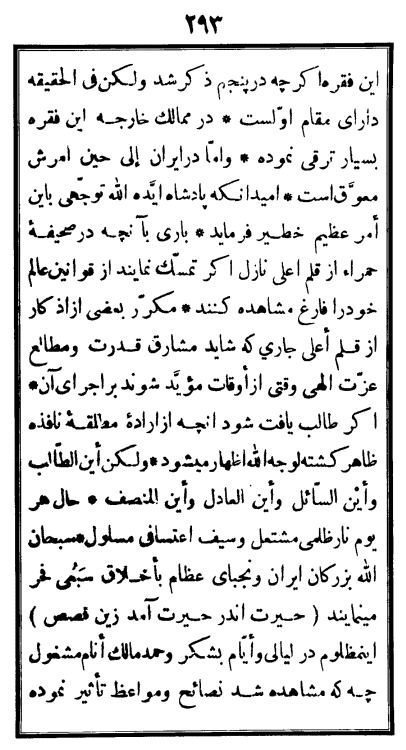 ۲۹۳
این فقره اکرچه در پنجم ذکر شد ولکن فی الحقیقه
دارای مقام اوّلست * در ممالك خارجه این فقره
بسیار ترقی نموده * وامّا در ایران إلی حین امرش
معوَّق است * امید انکه پادشاه ایّده الله توجّهی باین
أمر عظیم خطیر فرماید * باری بآنچه در صحیفهٔ
حمراء از قلم اعلی نازل اکر تمسّك نمایند از قوانین عالم
خود را فارغ مشاهده کنند * مکرّر بعضی از اذکار
از قلم أعلی جاري که شاید مشارق قدرت ومطالع
عزّت الهی وقتی از أوقات مؤیَّد شوند بر اجرای آن *
اکر طالب یافت شود انچه از ارادهٔ مطلقهٔ نافذه
ظاهر کشته لوجه الله اظهار میشود * ولکن أین الطّالب
وأیْن السّائل وأین العادل وأین المنصف * حال هر
یوم نار ظلمی مشتعل وسیف اعتسافی مسلول * سبحان
الله بزرکان ایران ونجبای عظام بأخلاق سَبُعی فخر
مینمایند ( حیرت اندر حیرت آمد زین قصص )
اینمظلوم در لیالی وأیّام بشکر وحمد مالك أنام مشغول
چه که مشاهده شد نصائح ومواعظ تأثیر نموده